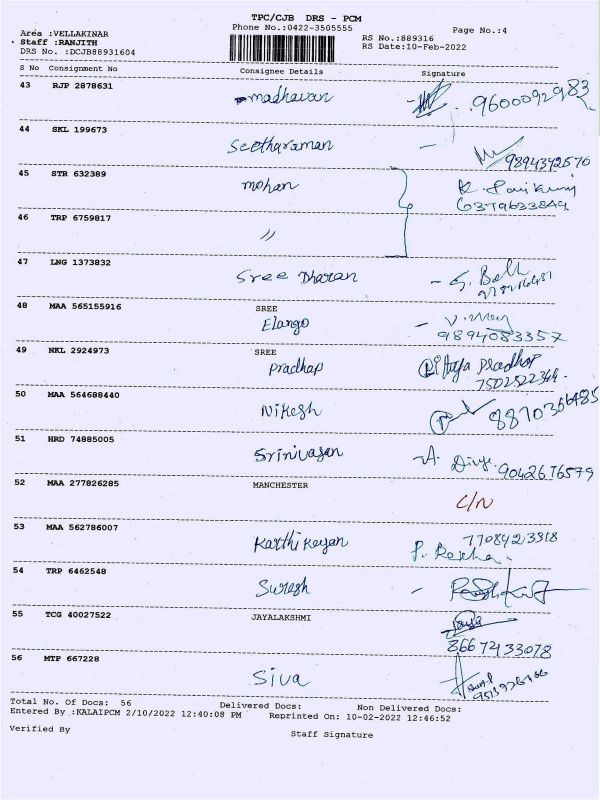 TPC/CJB DRS - PCM
Phone No.:0422-3505555
Aréa :VELLAKINAR
Staff :RANJITH
DRS No. :DCJB88931604
RS No.:889316
RS Date:10-Feb-2022
Page No.:4
S No Consignment No Consignee Details Signature
43 RJP 2878631 madhavan 9600092983
44 SKL 199673 Seetharaman 9894392570
45 STR 632389 mohan
6379633849
46 TRP 6759817 〃
47 LNG 1373832 Sree Dharan
48 MAA 565155916 SREE
Elango 9894083357
49 NKL 2924973 SREE
Pradhap Pradhap
7502522344
50 MAA 564688440 Nikesh
51 HRD 74885005 Srinivasan A. Divya 9042676579
52 MAA 277826285 MANCHESTER C/N
53 MAA 562786007 Karthikeyan P. Rekha 7708423318
54 TRP 6462548 Suresh
55 TCG 40027522 JAYALAKSHMI
8667433078
56 MTP 667228 Siva
Total No. Of Docs: 56 Delivered Docs: Non Delivered Docs:
Entered By :KALAIPCM 2/10/2022 12:40:08 PM Reprinted On: 10-02-2022 12:46:52
Verified By Staff Signature